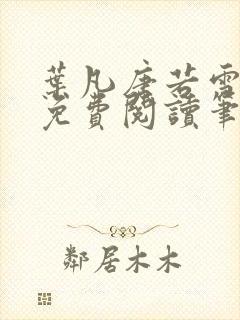 葉凡唐若雪
免費閱讀筆
鄰居木木